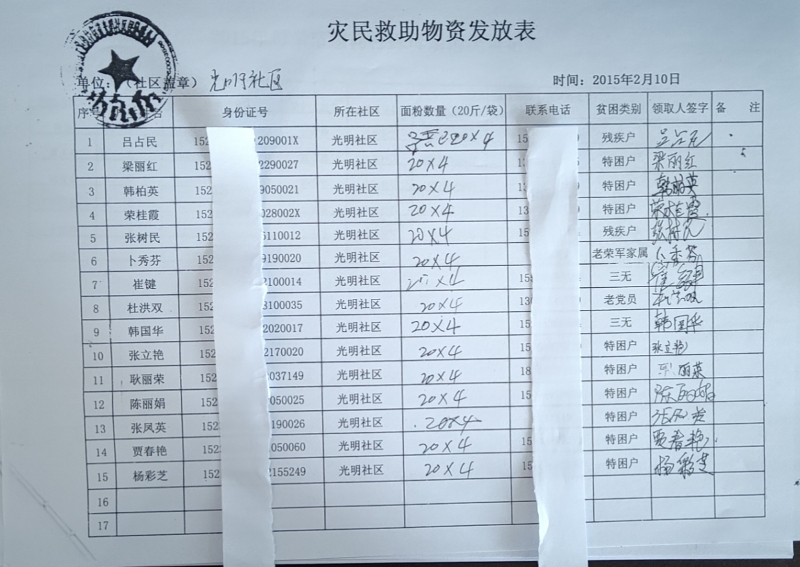 灾民救助物资发放表
单位：（社区盖章） 光明社区 时间：2015年2月10日
序号 姓名 身份证号 所在社区 面粉数量（20斤/袋） 联系电话 贫困类别 领取人签字 备 注
1 吕占民 152 209001X 光明社区 20×4 残疾户 吕占民
2 梁丽红 152 2290027 光明社区 20×4 特困户 梁丽红
3 韩柏英 152 9050021 光明社区 20×4 特困户 韩柏英
4 荣桂霞 152 028002X 光明社区 20×4 特困户 荣桂霞
5 张树民 152 5110012 光明社区 20×4 残疾户 张树民
6 卜秀芬 152 9190020 光明社区 20×4 老荣军家属 卜秀芬
7 崔键 152 2100014 光明社区 ×4 三无
8 杜洪双 152 3100035 光明社区 20×4 老党员
9 韩国华 152 2020017 光明社区 20×4 三无 韩国华
10 张立艳 152 2170020 光明社区 20×4 特困户 张立艳
11 耿丽荣 152 037149 光明社区 20×4 特困户 丽荣
12 陈丽娟 152 050025 光明社区 20×4 特困户
13 张凤英 152 190026 光明社区 20×4 特困户 张凤英
14 贾春艳 152 050060 光明社区 20×4 特困户 贾春艳
15 杨彩芝 152 2155249 光明社区 20×4 特困户 杨彩芝
16
17